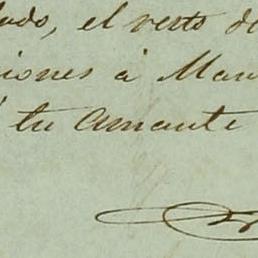 el resto de
iones á Man
tu amante